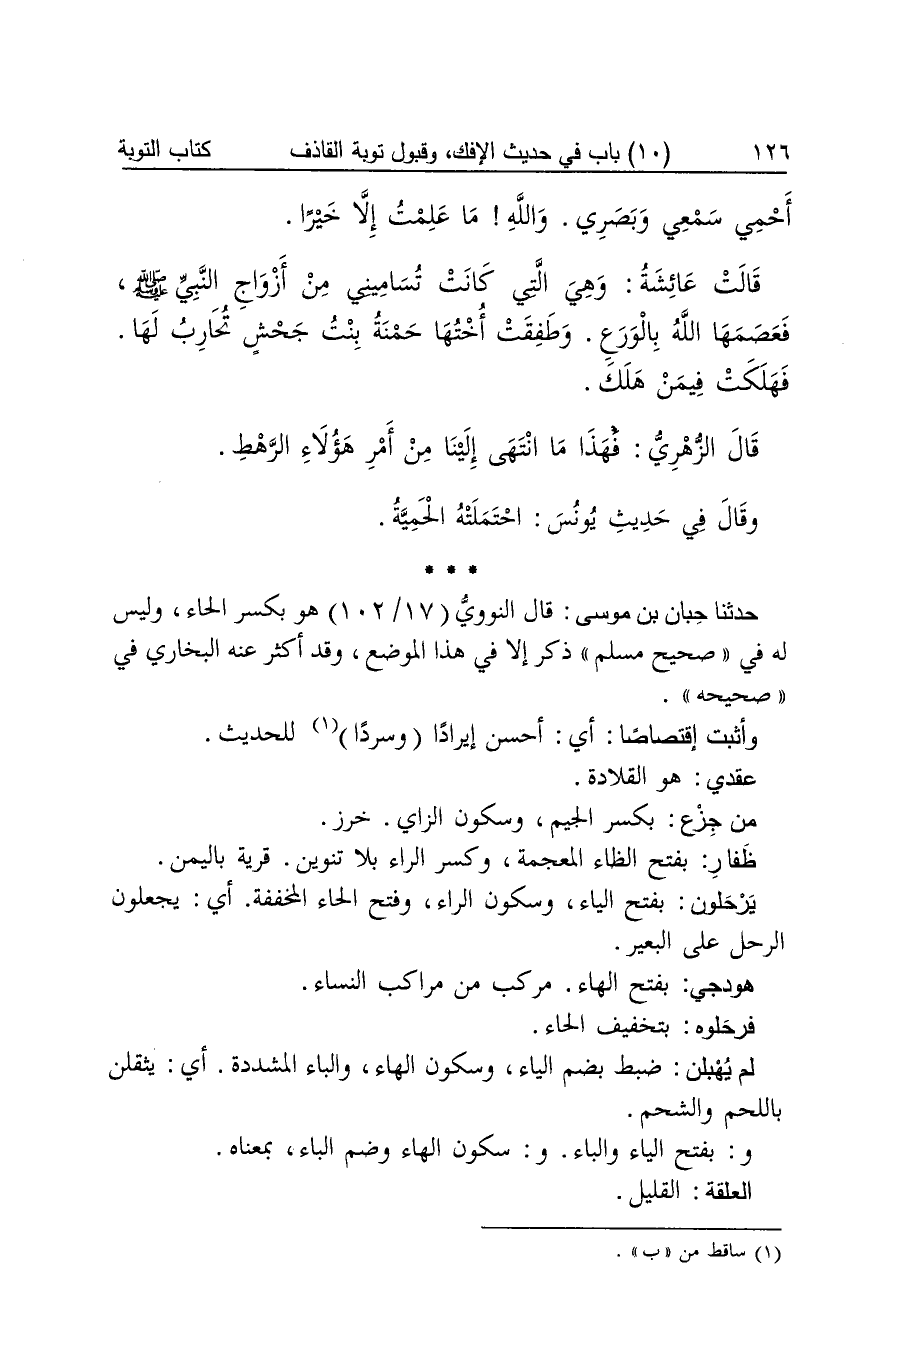 ١٢٦ (١٠) باب في حديث الإفك، وقبول توبة القاذف كتاب التوبة
أَحْمِي سَمْعِي وَبَصَرِي . وَاللَّهِ ! مَا عَلِمْتُ إِلَّا خَيْرًا .
قَالَتْ عَائِشَةُ : وَهِيَ الَّتِي كَانَتْ تُسَامِينِي مِنْ أَزْوَاجِ النَّبِيِّ ﷺ ،
فَعَصَمَهَا اللَّهُ بِالْوَرَعِ . وَطَفِقَتْ أُخْتُهَا حَمْنَةُ بِنْتُ جَحْشٍ تُحَارِبُ لَهَا .
فَهَلَكَتْ فِيمَنْ هَلَكَ .
قَالَ الزُّهْرِيُّ : فَهَذَا مَا انْتَهَى إِلَيْنَا مِنْ أَمْرِ هَؤُلَاءِ الرَّهْطِ .
وقَالَ فِي حَدِيثِ يُونُسَ : احْتَمَلَتْهُ الْحَمِيَّةُ .
* * *
حدثنا حِبان بن موسى : قال النوويُّ (١٠٢/١٧) هو بكسر الحاء ، وليس
له في « صحيح مسلم » ذكر إلا في هذا الموضع ، وقد أكثر عنه البخاري في
« صحيحه » .
وأثبت إقتصاصًا : أي : أحسن إيرادًا ( وسردًا )(١) للحديث .
عقدي : هو القلادة .
من جِزْع : بكسر الجيم ، وسكون الزاي . خرز .
ظَفارِ: بفتح الظاء المعجمة ، وكسر الراء بلا تنوين . قرية باليمن .
يَرْحَلون : بفتح الياء ، وسكون الراء ، وفتح الحاء المخففة. أي : يجعلون
الرحل على البعير .
هودجي: بفتح الهاء . مركب من مراكب النساء .
فرحَلوه : بتخفيف الحاء .
لم يُهْبلن : ضبط بضم الياء ، وسكون الهاء ، والباء المشددة . أي : يثقلن
باللحم والشحم .
و : بفتح الياء والباء . و : سكون الهاء وضم الباء ، بمعناه .
العلقة : القليل .
(١) ساقط من « ب » .